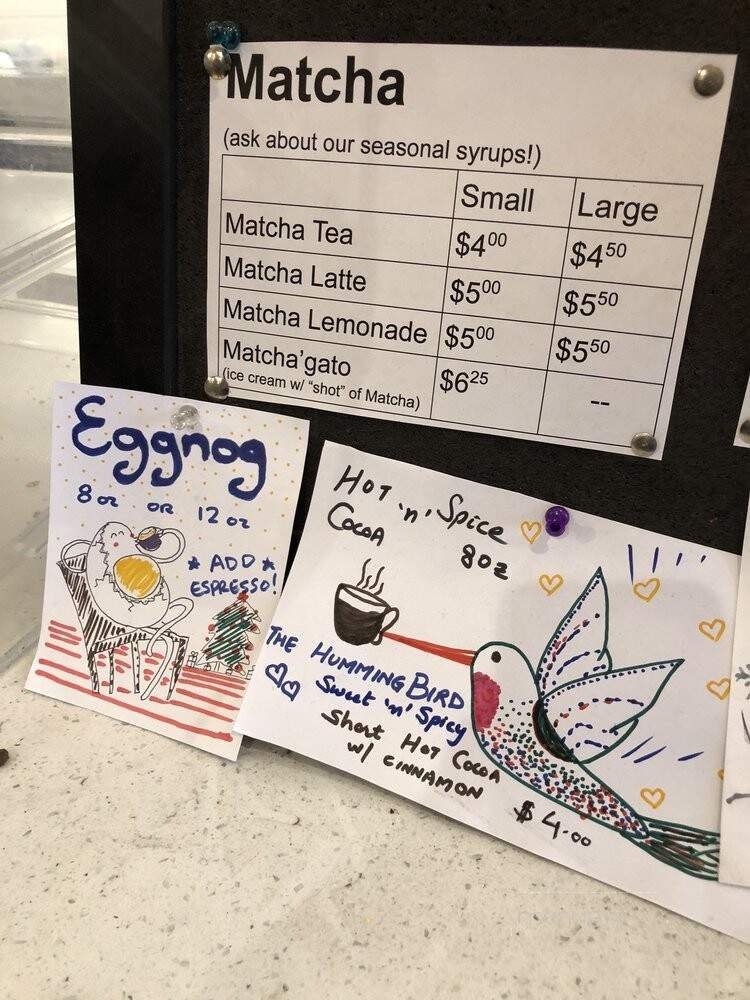 Matcha
(ask about our seasonal syrups!)
Small Large
Matcha Tea $4.00 $4.50
Matcha Latte $5.00 $5.50
Matcha Lemonade $5.00 $5.50
Matcha'gato $6.25 --
(ice cream w/ "shot" of Matcha)
Eggnog
8 oz OR 12 oz
* ADD *
ESPRESSO!
HOT 'n' Spice
COCOA 8oz
THE HUMMINGBIRD
Sweet 'n' Spicy
Short HOT COCOA
w/ CINNAMON
$4.00